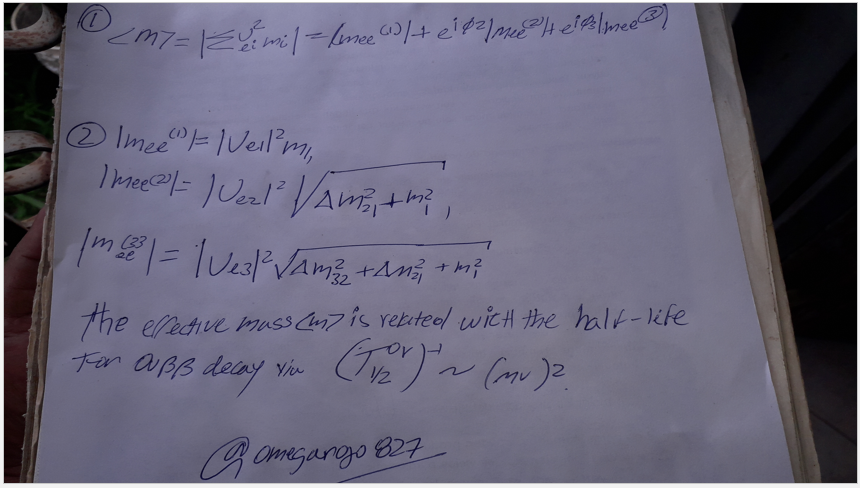 ① <m> = |∑ U²ei mi| = |mee⁽¹⁾| + e^iϕ2 |mee⁽²⁾| + e^iϕ3 |mee⁽³⁾|
② |mee⁽¹⁾| = |Ue1|² m1,
|mee⁽²⁾| = |Ue2|² √(Δm²21 + m²1),
|mee⁽³⁾| = |Ue3|² √(Δm²32 + Δm²21 + m²1)
The effective mass <m> is related with the half-life
For 0νββ decay via (T^0ν 1/2)⁻¹ ~ (mν)2.
@omegango827